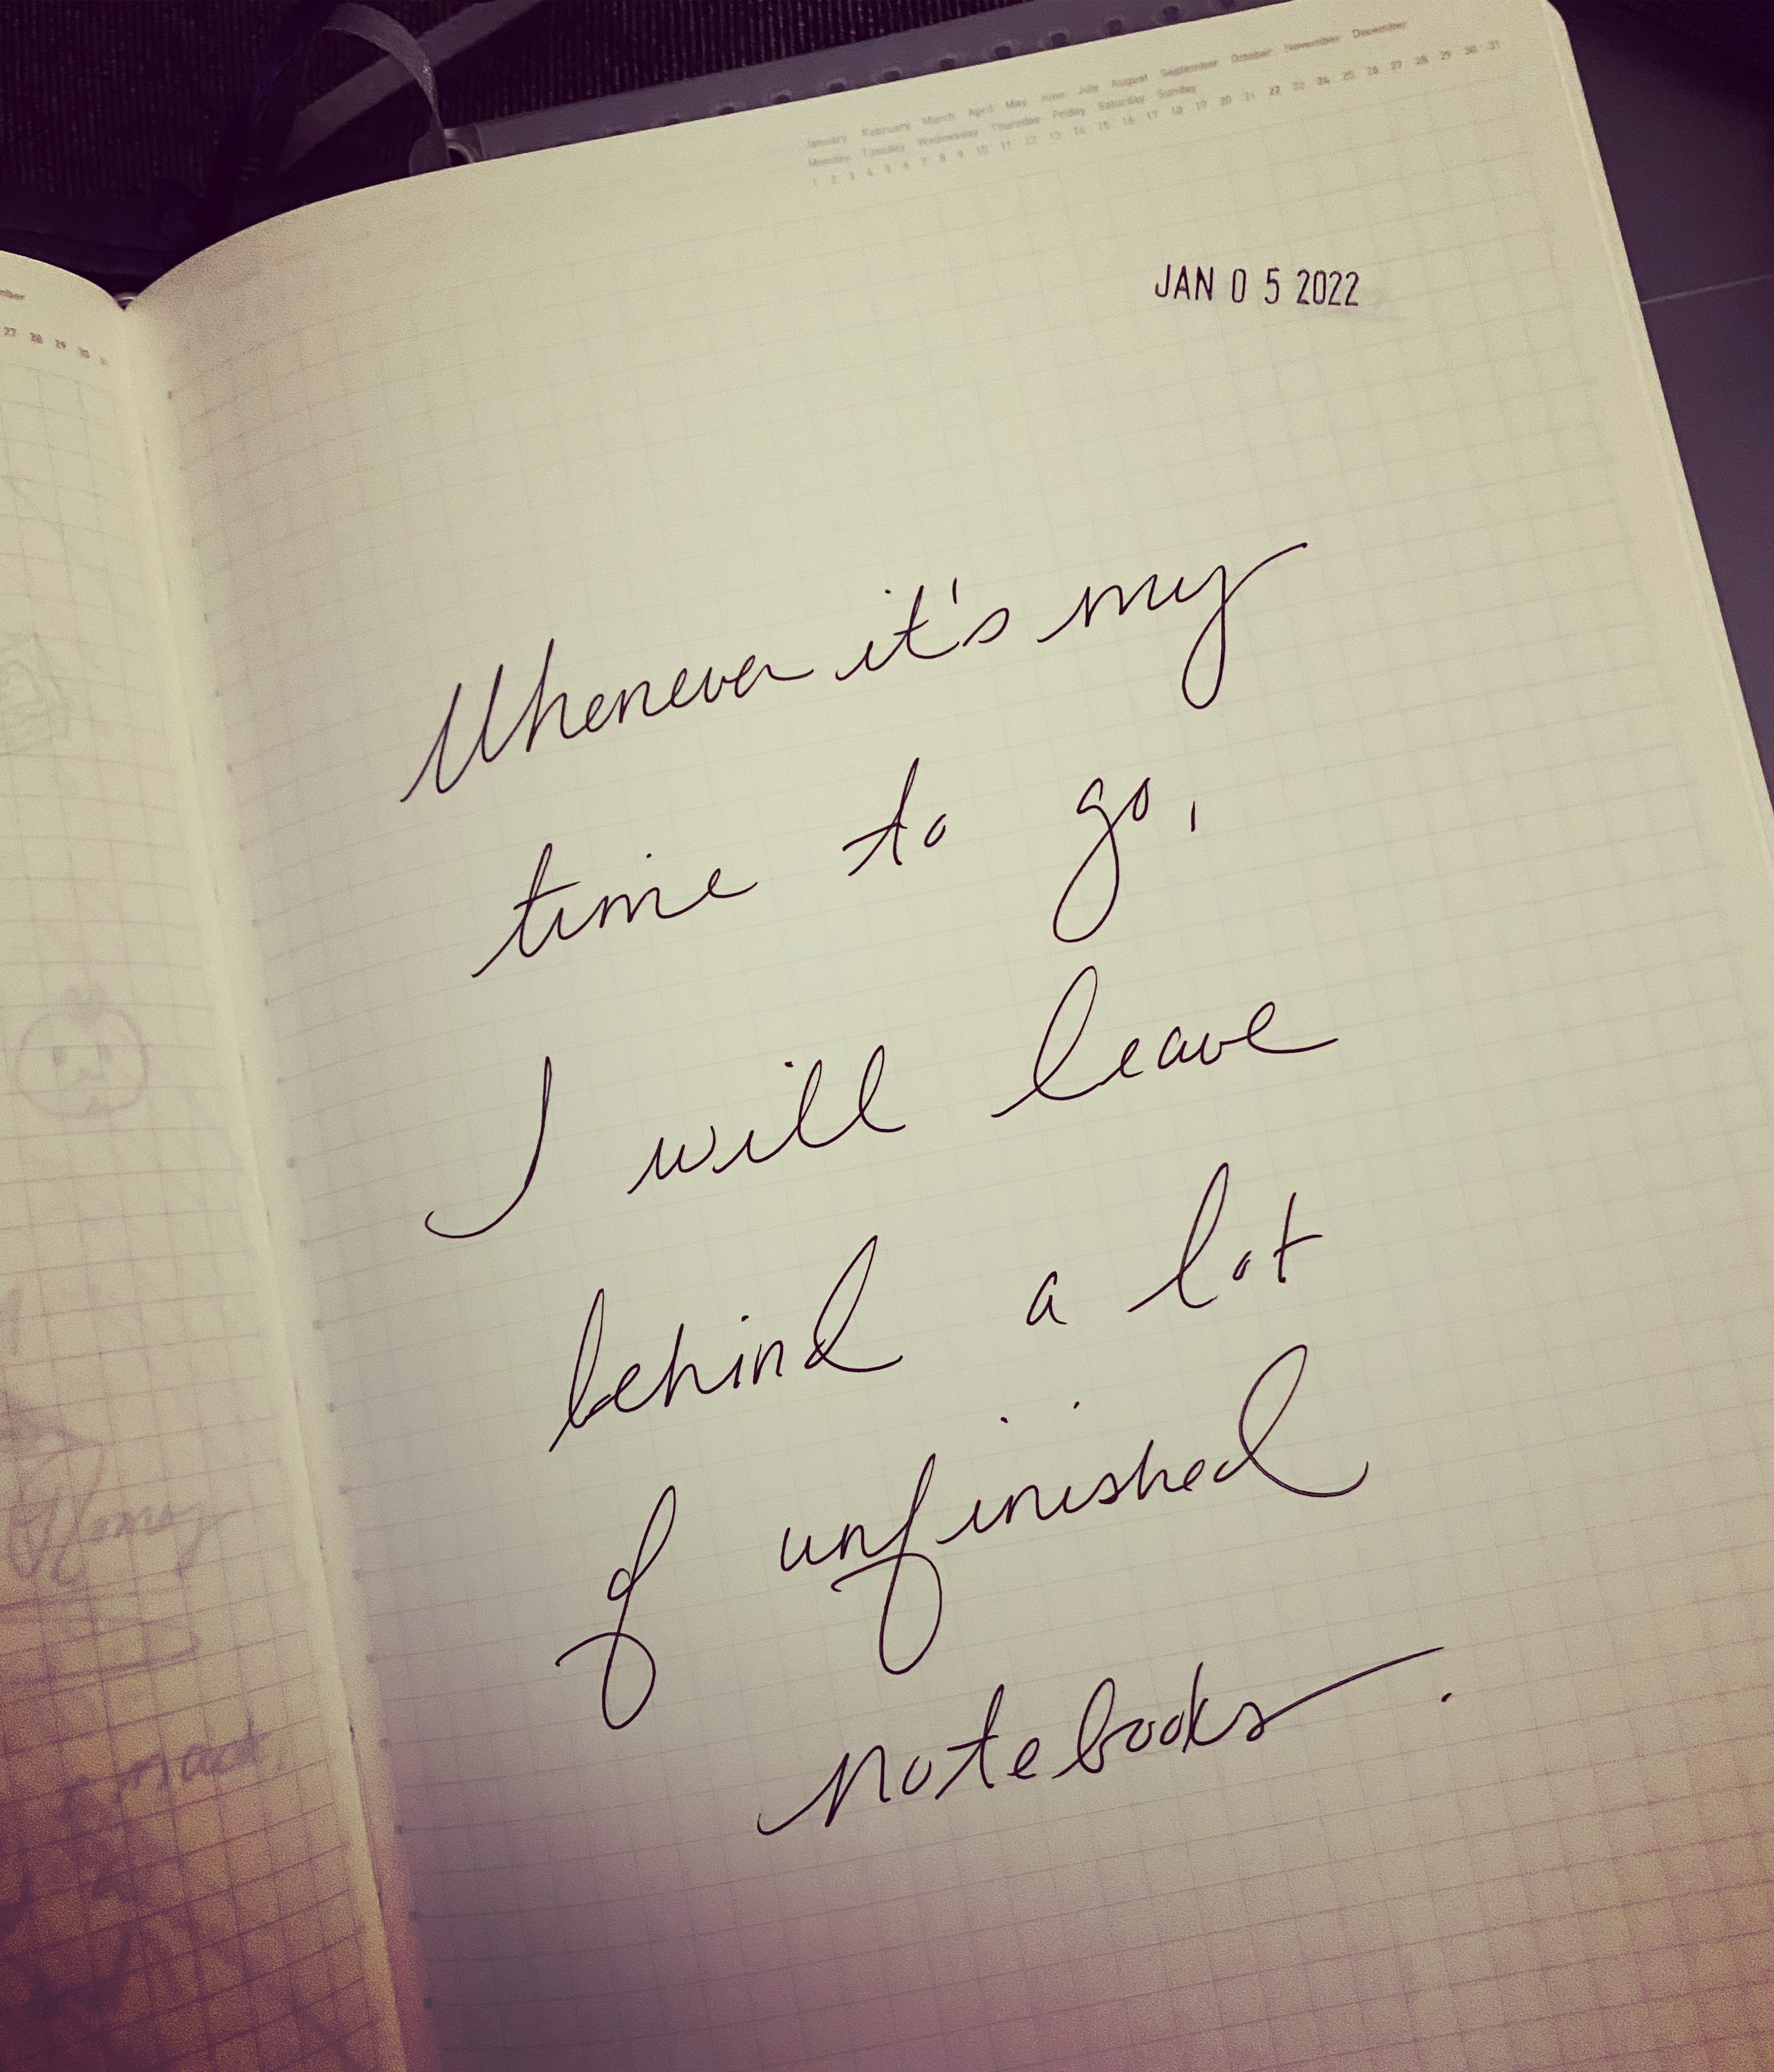 January February March April May June July August September October November December
Monday Tuesday Wednesday Thursday Friday Saturday Sunday
1 2 3 4 5 6 7 8 9 10 11 12 13 14 15 16 17 18 19 20 21 22 23 24 25 26 27 28 29 30 31
27 28 29 30 31
JAN 05 2022
Whenever it's my
time to go,
I will leave
behind a lot
of unfinished
notebooks.